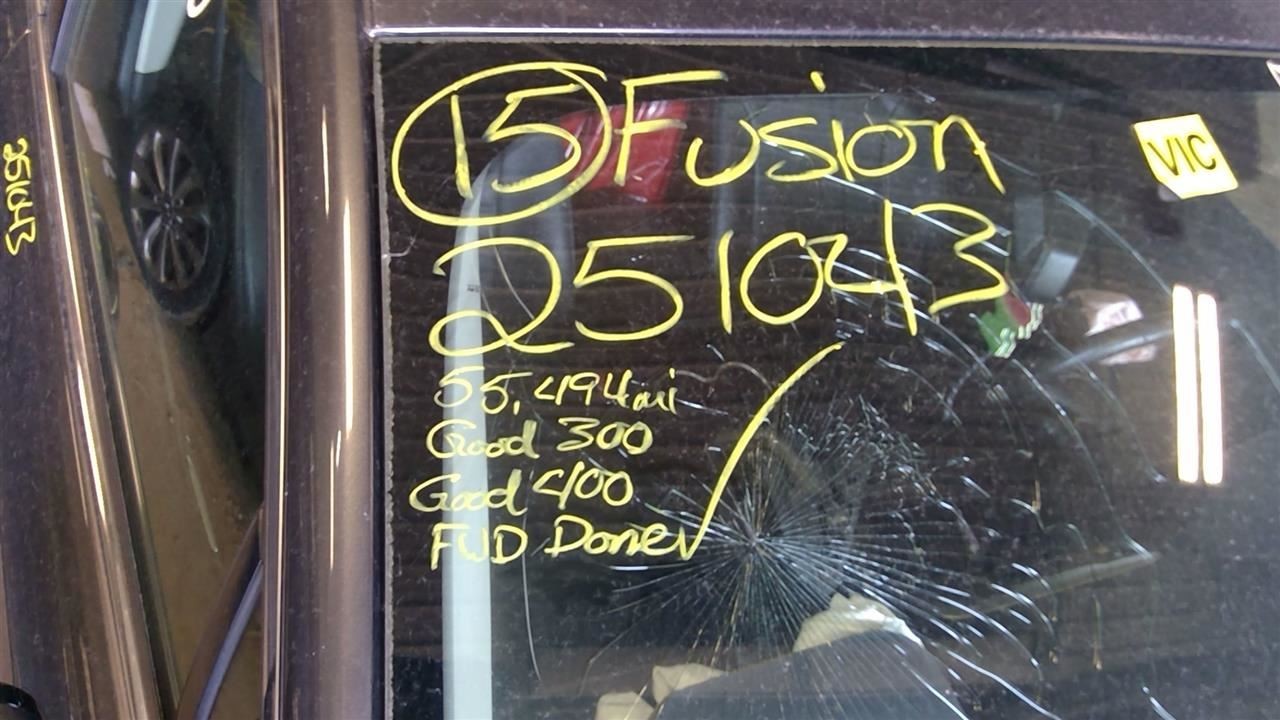 15 Fusion
VIC
251043
55,494mi
Good 300
Good 400
FWD Done ✓
251043